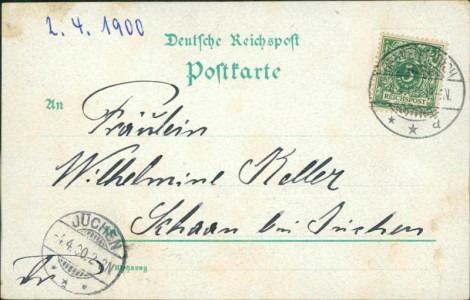 2. 4. 1900
Deutsche Reichspost
Postkarte
An
REICHSPOST
Fräulein
Wilhelmine Keller
Schaan bei Jüchen
JÜCHEN
Wohnung